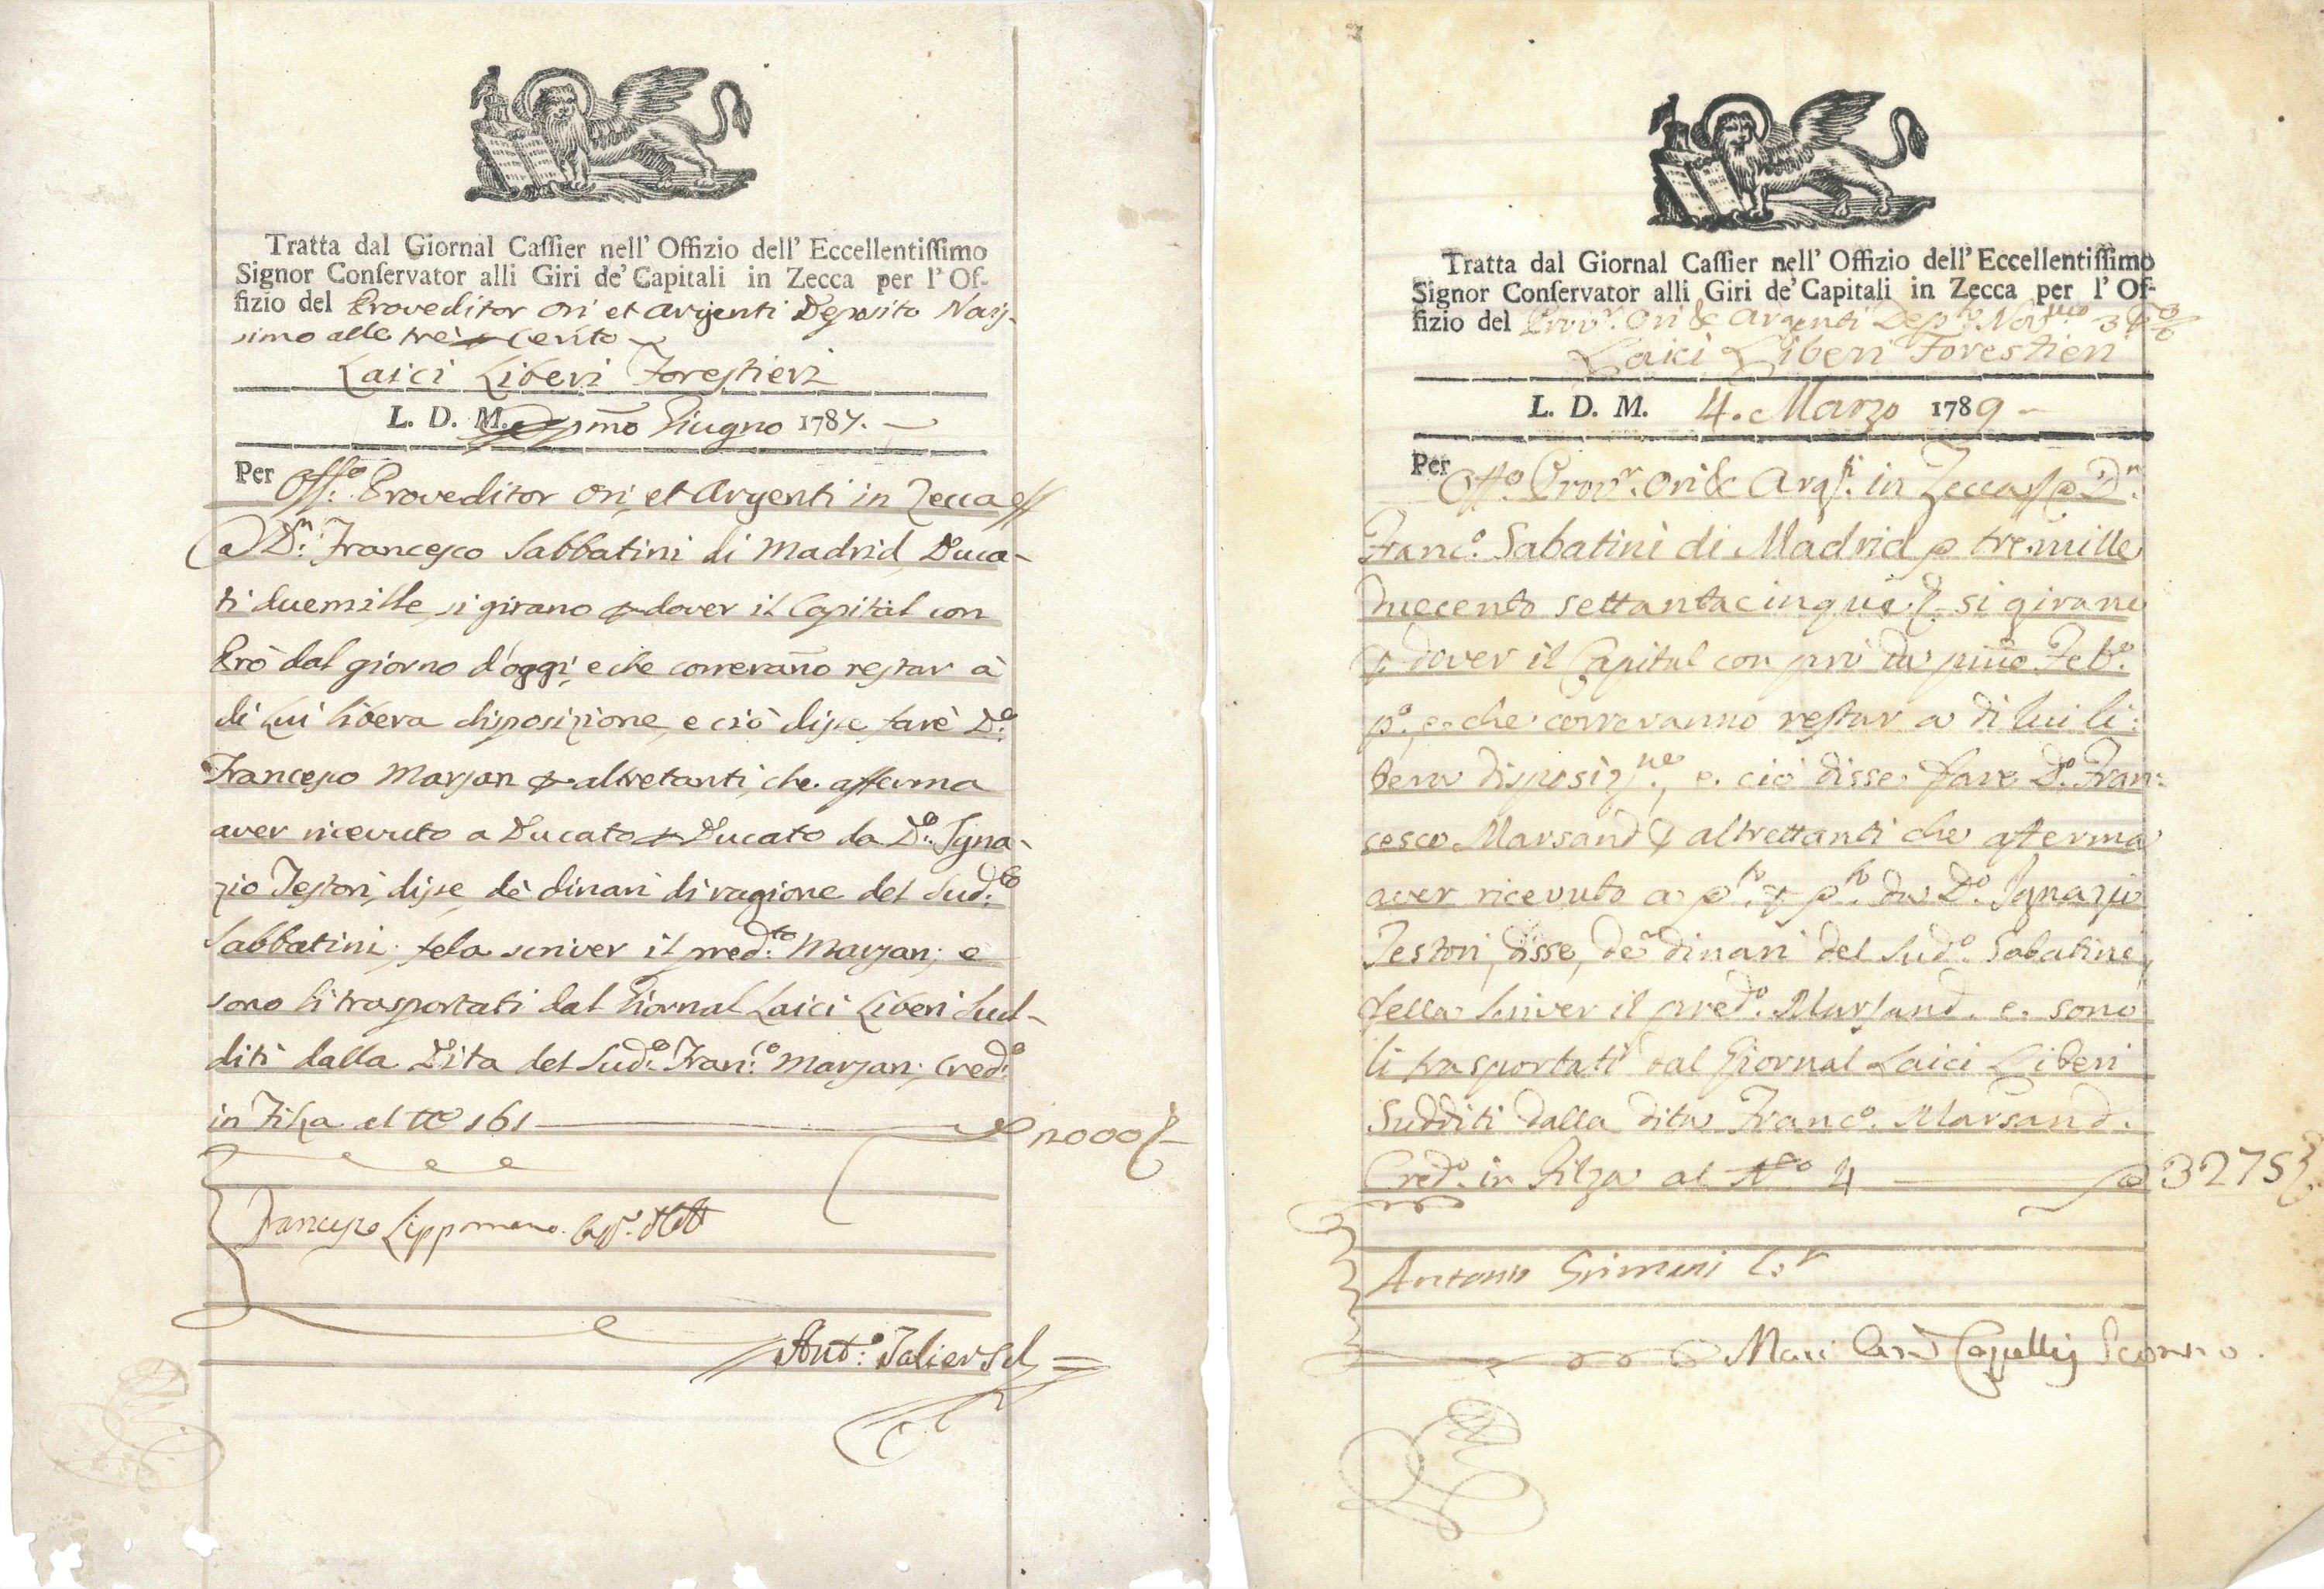 Tratta dal Giornal Caſſier nell' Offizio dell' Eccellentiſſimo
Signor Conſervator alli Giri de' Capitali in Zecca per l' Of-
fizio del Proveditor Ori et Argenti Deposito Novis-
simo alle trè per cento
Laici Liberi Forestieri
L. D. M. pmo Giugno 1787.
Per Off.o Proveditor Ori, et Argenti in Zecca
a D.n Francesco Sabbatini di Madrid, Duca-
ti duemille, si girano per dover il Capital con
Prò dal giorno d'oggi, e che correranno restar à
di Lui libera disposizione, e ciò disse farè D.o
Francesco Marsan per altretanti, che afferma
aver ricevuto a Ducato per Ducato da D.o Igna-
zio Testori, disse, dè dinari di ragione del Sud.to
Sabbatini; fela scriver il pred.to Marsan; e
sono li trasportati dal Giornal Laici Liberi Sud-
diti dalla Dita del Sud.o Fran.co Marsan; Cred.o
in Filza al No 161 2000
Francesco Lippomano
Ant.o
Tratta dal Giornal Caſſier nell' Offizio dell' Eccellentiſſimo
Signor Conſervator alli Giri de' Capitali in Zecca per l' Of-
fizio del Prov.r Ori & Argenti Dep.to Nov.mo 3 p
Laici Liberi Forestieri
L. D. M. 4. Marzo 1789
Per Off.o Prov.r Ori & Arg.ti in Zecca D.n
Franc.o Sabatini di Madrid tremille
duecento settantacinque si girano
p dover il Capital con prò da pmo Feb.o
p.o, e che correranno restar a di lui li:
bera disposiz.ne, e ciò disse fare D.o Fran:
cesco Marsand p altrettanti che afferma
aver ricevuto a p da D.o Ignazio
Testori, disse, de dinari del Sud.o Sabatini,
fella scriver il pred.o Marsand. e sono
li trasportati dal Giornal Laici Liberi
Sudditi dalla dita Franc.o Marsand.
Cred.o in Filza al No 4 3275
Antonio Grimani